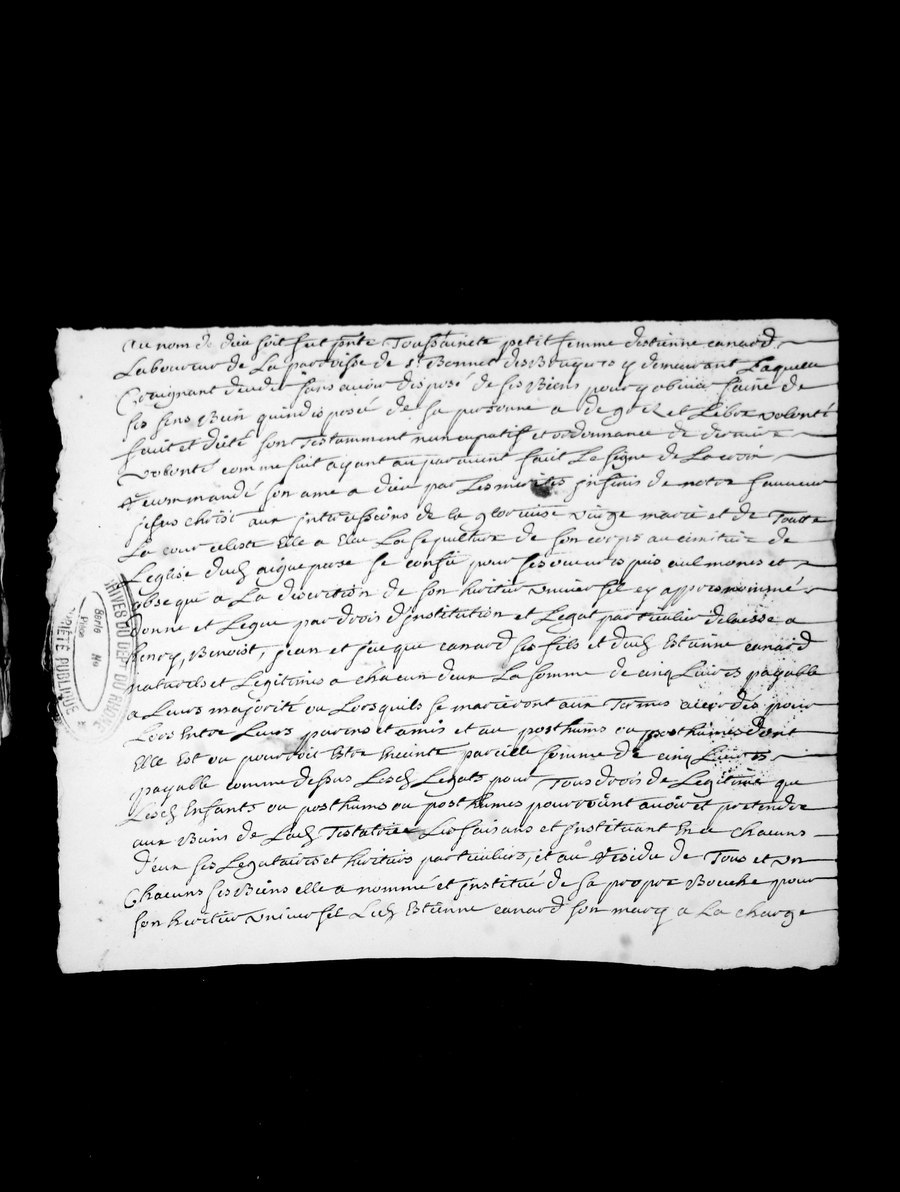 Au nom de dieu soit fut pnte Toussainete petit femme destienne canard
Laboureur de La parroisse de St Bonnet des Bruyeres y demeurant Laquelle
Craignant deceder sans avoir disposé de ses Biens pour y obvier saine de
ses sens Bien quindisposée de sa personne a de gré et Libre volonté
fait et dicté son Testamment nuncupatif et ordonnance de derniere
volonté comme suit ayant au paravant fait Le signe de La croix
Recommandé son ame a dieu par Les merites infinis de notre sauveur
jesus christ aux intercessions de la glorieuse vierge marie et de Toutte
La cour celeste Elle a Elu La sepulture de son corps au cimitiere de
L'eglise dud aigueperse se confie pour ses oeuvres pies aulmones et
obseque a La discretion de son heritier universel cy apprés nommé
donne et Legue par droit d'institution et Legat particulier delaisse a
henry, Benoist, jean et jacque canard ses fils et dud Estienne canard
naturels et Legitimes a chacun deux La somme de cinq Livres payable
a Leurs majorité ou Lorsquils se marieront aux Termes accordés pour
Lors Entre Leurs parens et amis et au posthume ou posthumes dont
Elle Est ou pourroit Estre Enceinte pareille somme de cinq Livres
payable comme dessus Lesd Legats pour Tous droits de Legitime que
Lesd Enfants ou posthume ou posthumes pourroient avoir et pretendre
aux Biens de Lad Testatrice Les faisans et instituant En ce chacuns
d'eux ses Legataires et heritiers particuliers, et au Residu de Tous et un
Chacuns ses Biens elle a nommé et institué de sa propre Bouche pour
son heritier universel Led Estienne canard son mary a La charge
ARCHIVES DU DEPT DU RHONE
PROPRIÉTÉ PUBLIQUE
Série
No